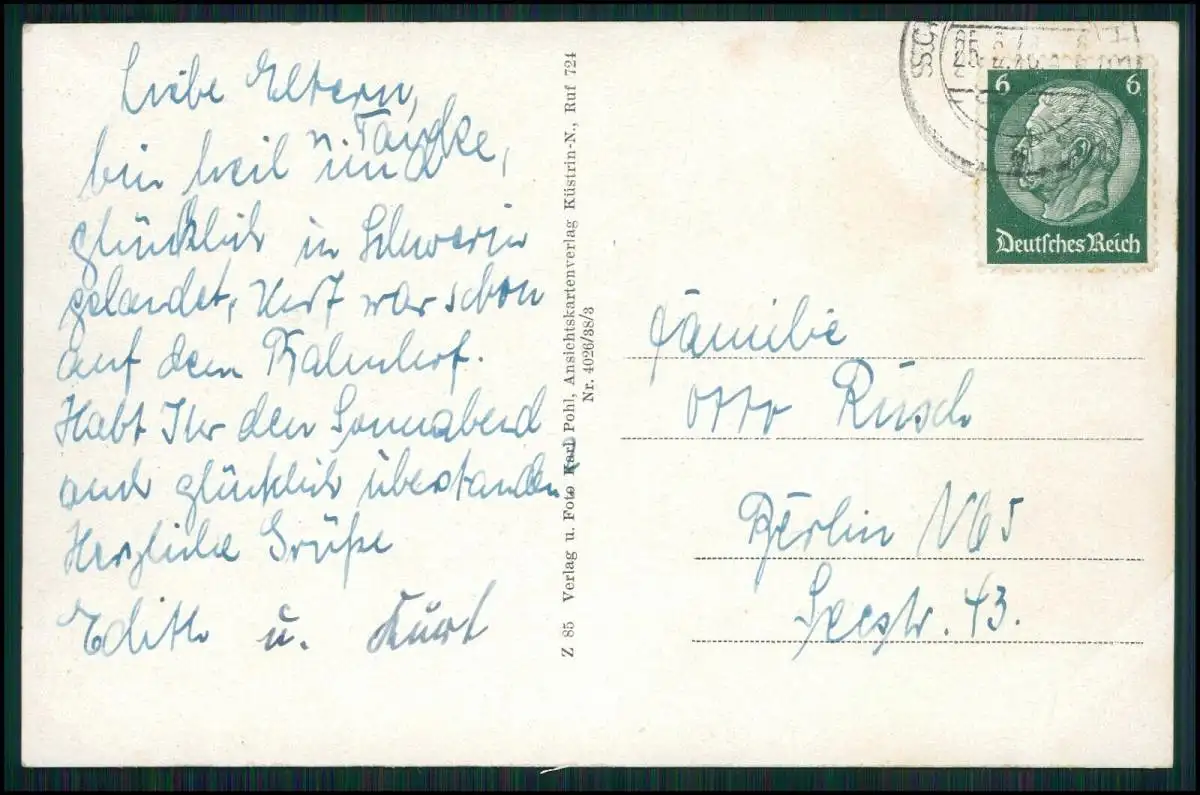 Liebe Eltern,
bin heil und
glücklich in Schwerin
gelandet, Kurt war schon
auf dem Bahnhof.
Habt Ihr den Sonnabend
auch glücklich überstanden
Herzliche Grüße
Edith u. Kurt
Z 85 Verlag u. Foto Karl Pohl, Ansichtskartenverlag Küstrin-N., Ruf 724
Nr. 4026/38/3
6 6
Deutsches Reich
Familie
Otto Rusch
Berlin N65
Seestr. 43.